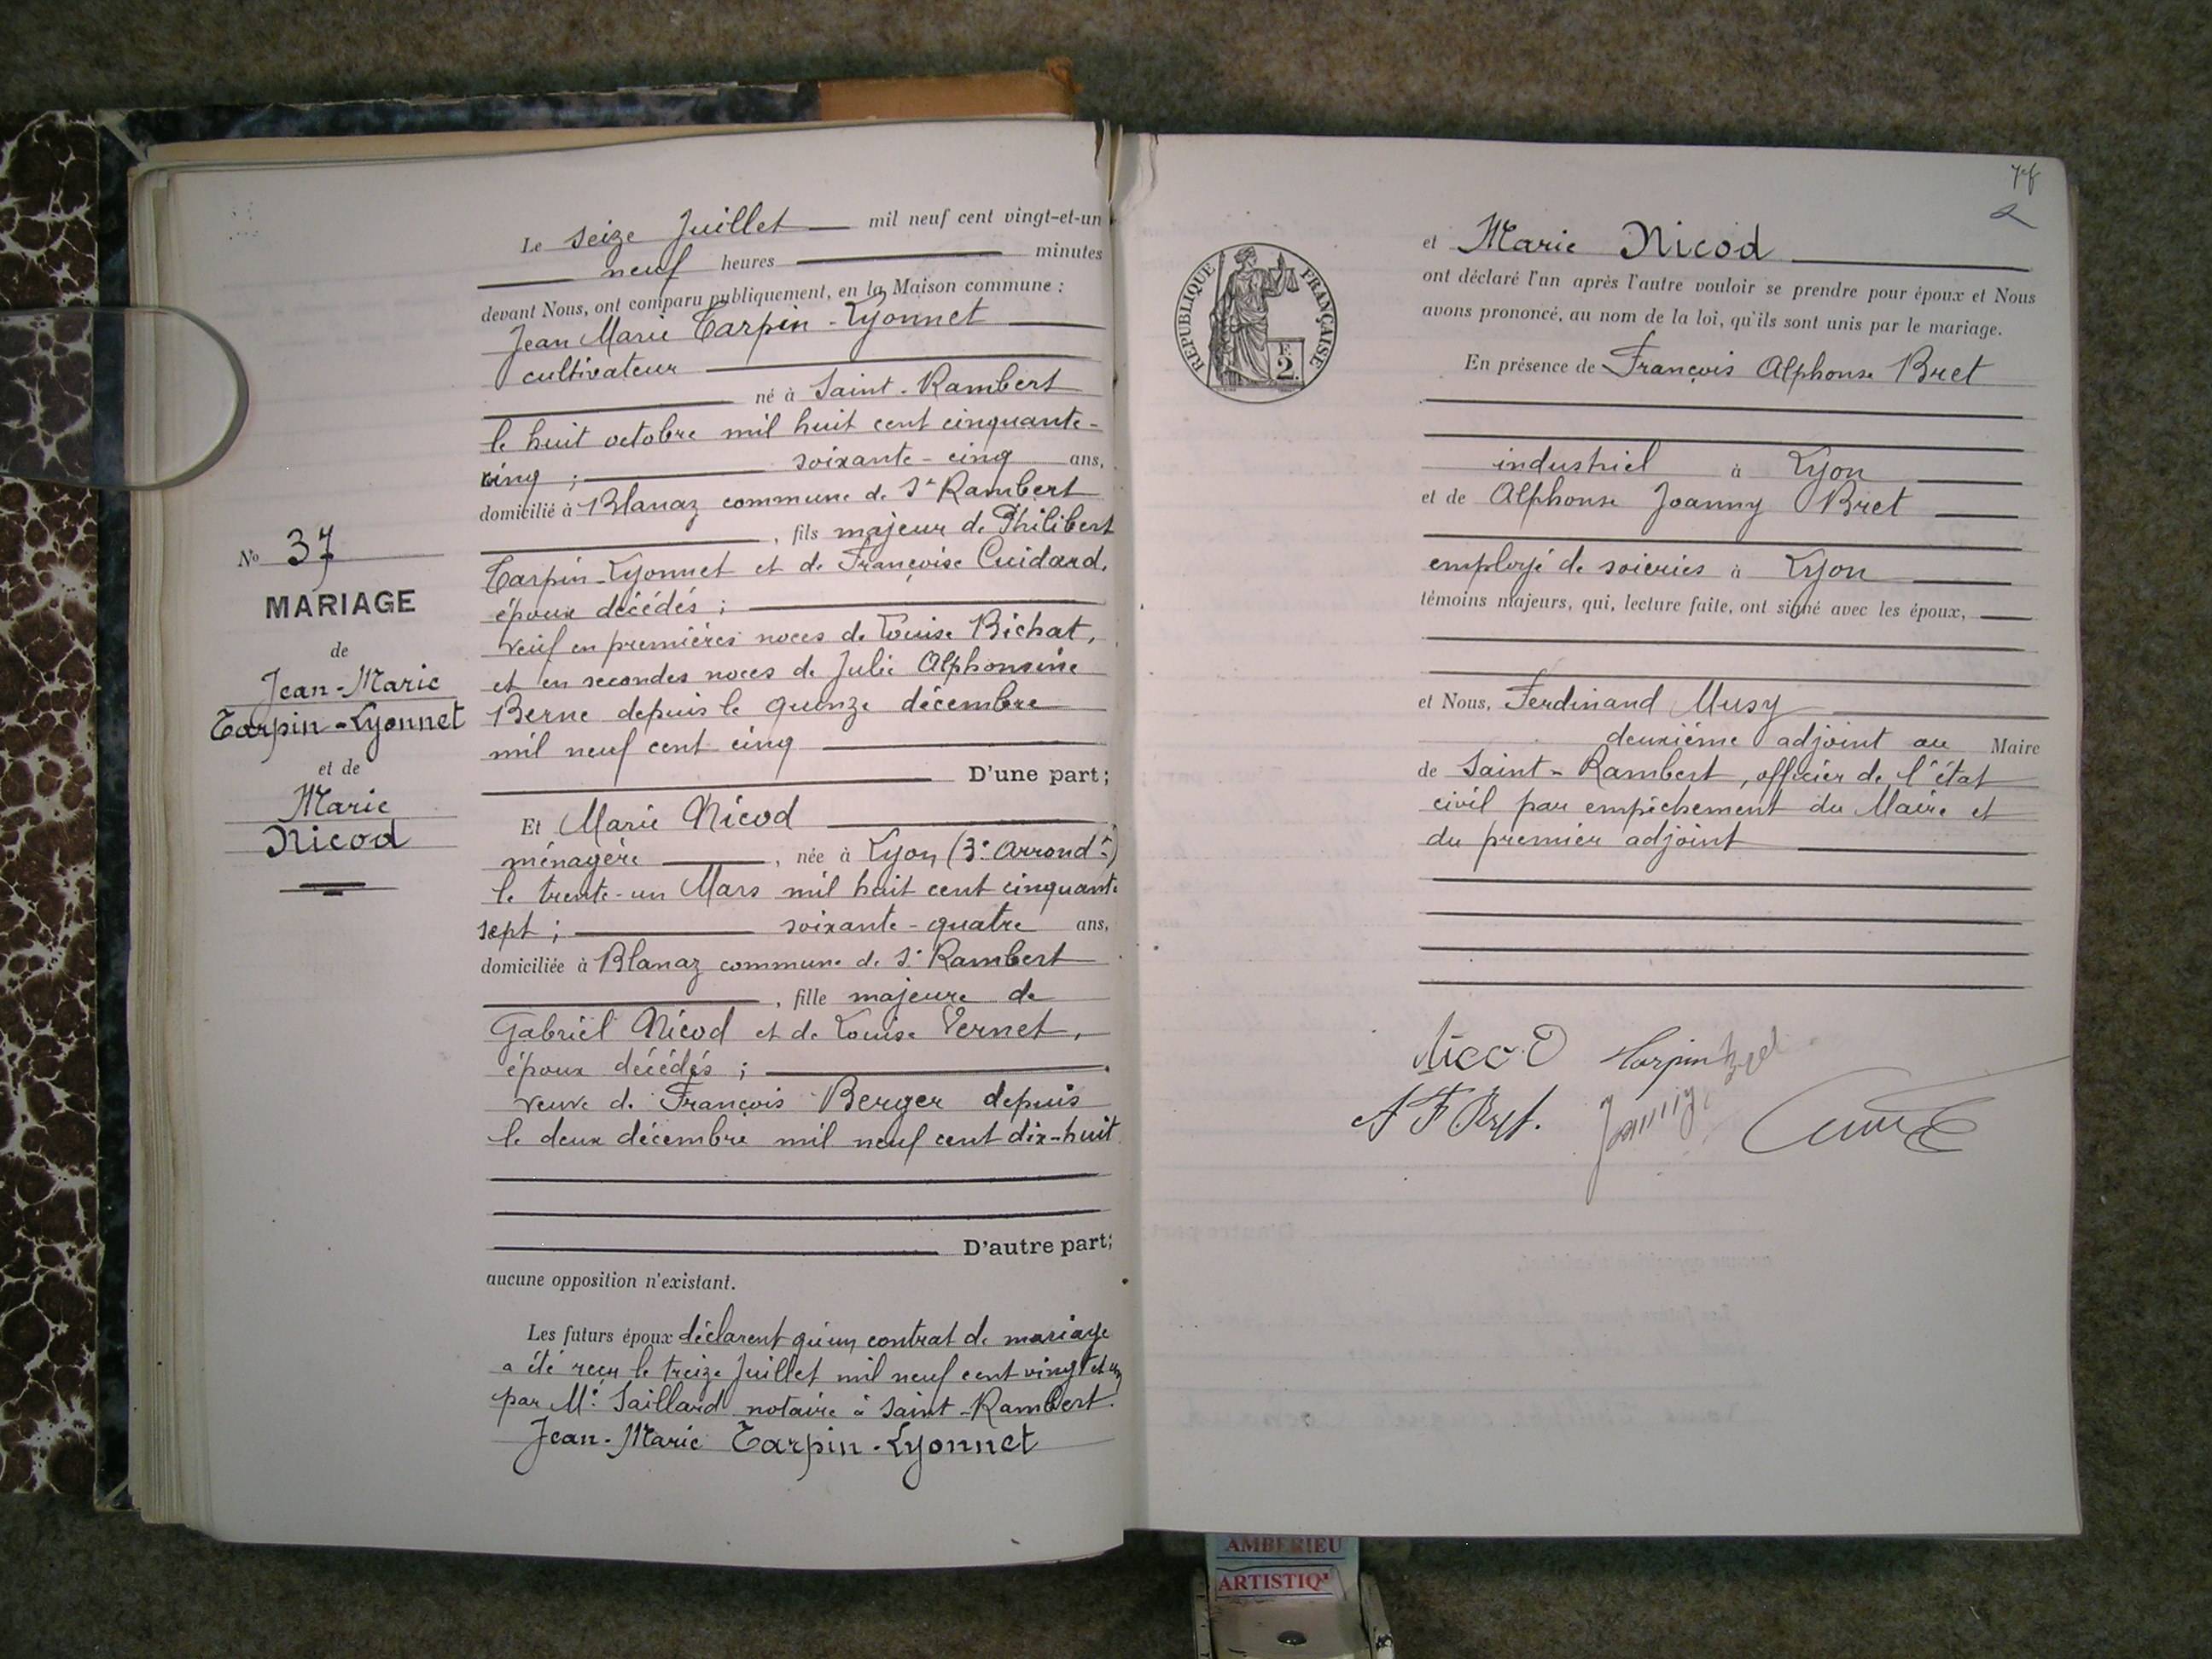 Le seize Juillet mil neuf cent vingt-et-un
neuf heures minutes
devant Nous, ont comparu publiquement, en la Maison commune :
Jean Marie Tarpin-Lyonnet
cultivateur
né à Saint-Rambert
le huit octobre mil huit cent cinquante-
cinq ; soixante-cinq ans,
domicilié à Blanaz commune de St Rambert
, fils majeur de Philibert
Tarpin-Lyonnet et de Françoise Cuidard,
époux décédés ;
veuf en premières noces de Louise Bichat,
et en secondes noces de Julie Alphonsine
Berne depuis le quinze décembre
mil neuf cent cinq
D'une part ;
Et Marie Nicod
ménagère , née à Lyon (3e Arrondt)
le trente-un Mars mil huit cent cinquante
sept ; soixante-quatre ans,
domiciliée à Blanaz commune de St Rambert
, fille majeure de
Gabriel Nicod et de Louise Vernet,
époux décédés ;
veuve de François Berger depuis
le deux décembre mil neuf cent dix-huit
D'autre part ;
aucune opposition n'existant.
Les futurs époux déclarent qu'un contrat de mariage
a été reçu le treize Juillet mil neuf cent vingt et un
par Me Saillard notaire à Saint-Rambert.
Jean-Marie Tarpin-Lyonnet
No 37
MARIAGE
de
Jean-Marie
Tarpin-Lyonnet
et de
Marie
Nicod
RÉPUBLIQUE FRANÇAISE
F.
2.
et Marie Nicod
ont déclaré l'un après l'autre vouloir se prendre pour époux et Nous
avons prononcé, au nom de la loi, qu'ils sont unis par le mariage.
En présence de François Alphonse Bret
industriel à Lyon
et de Alphonse Joanny Bret
employé de soieries à Lyon
témoins majeurs, qui, lecture faite, ont signé avec les époux,
et Nous, Ferdinand Musy
deuxième adjoint au Maire
de Saint-Rambert, officier de l'état
civil par empêchement du Maire et
du premier adjoint
Nicod Tarpin
A F Bret.
AMBERIEU
ARTISTIQ